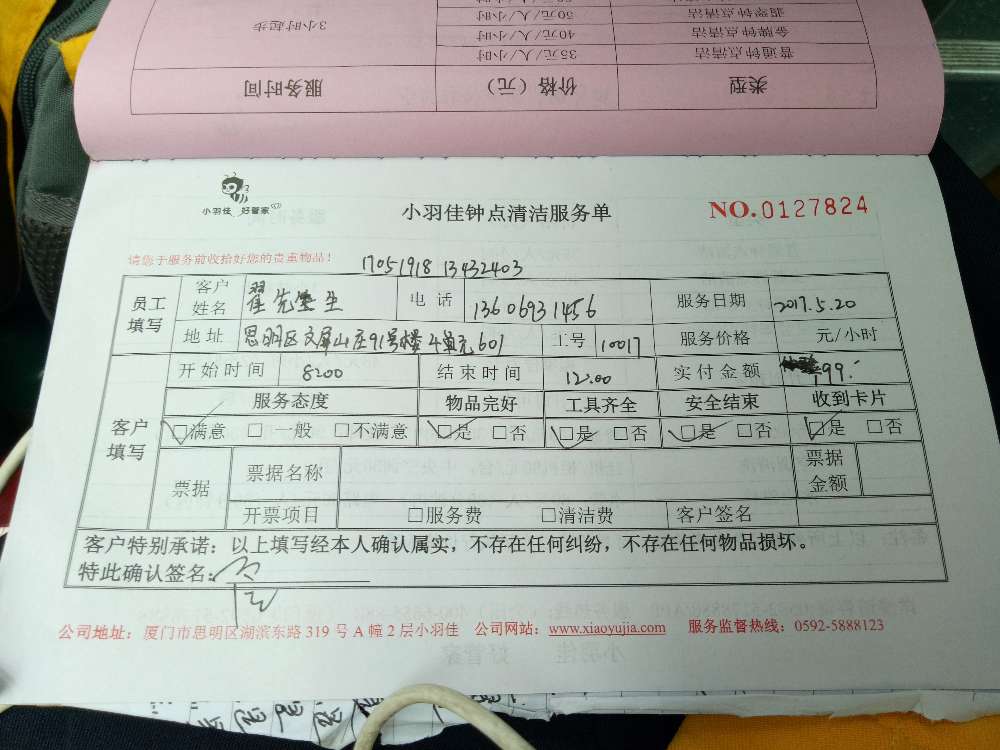 3小时起步
50元/人/小时
翡翠钟点清洁
40元/人/小时
金牌钟点清洁
35元/人/小时
普通钟点清洁
服务时间 价格（元） 类型
小羽佳 好管家
小羽佳钟点清洁服务单
NO.0127824
请您于服务前收拾好您的贵重物品！
17051918 13432403
员工填写 客户姓名 翟先生 电话 13606931456 服务日期 2017.5.20
地址 思明区文屏山庄91号楼4单元601 工号 10017 服务价格 元/小时
客户填写 开始时间 8:00 结束时间 12:00 实付金额 99.-
服务态度 物品完好 工具齐全 安全结束 收到卡片
☑满意 □一般 □不满意 ☑是 □否 ☑是 □否 ☑是 □否 ☑是 □否
票据 票据名称 票据金额
开票项目 □服务费 □清洁费 客户签名
客户特别承诺：以上填写经本人确认属实，不存在任何纠纷，不存在任何物品损坏。
特此确认签名：
公司地址：厦门市思明区湖滨东路 319 号 A 幢 2 层小羽佳 公司网站：www.xiaoyujia.com 服务监督热线：0592-5888123
小羽佳 好管家